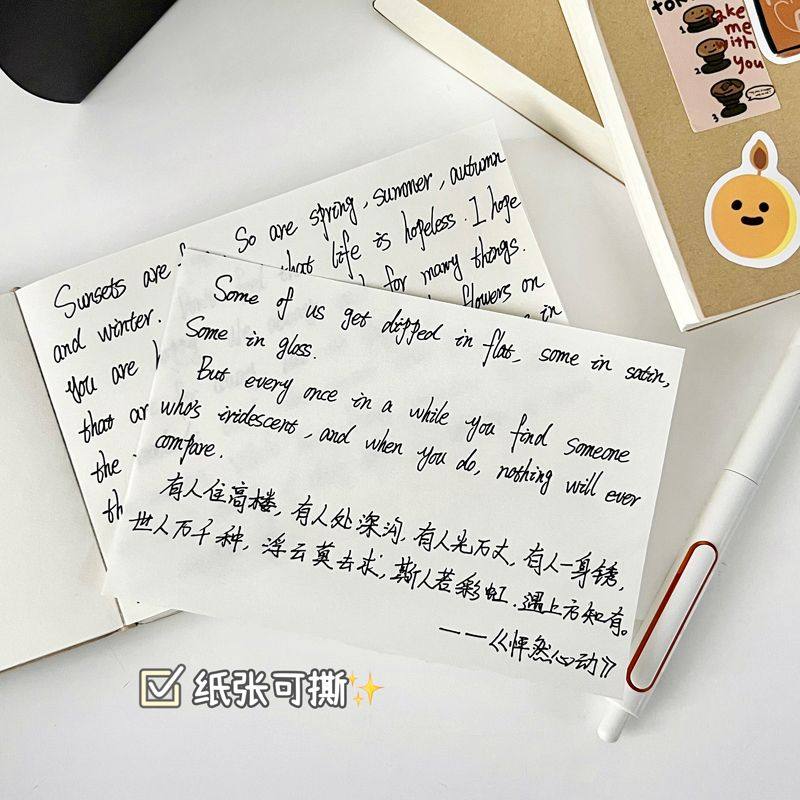 TOK
take
me
with
you
1
2
3
Sunsets are So are spring, summer, autumn
and winter. that life is hopeless. I hope
you are for many things.
that ar flowers on
the in
th
Some of us get dipped in flat, some in satin,
Some in gloss.
But every once in a while you find someone
who's iridescent, and when you do, nothing will ever
compare.
有人住高楼，有人处深沟，有人光万丈，有人一身锈，
世人万千种，浮云莫去求，斯人若彩虹，遇上方知有。
——《怦然心动》
纸张可撕